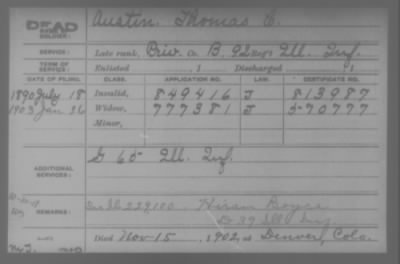 DEAD
SOLDIER: Austin, Thomas E.
SERVICE: Late rank, Priv. Co. B, 92 Reg't Ill. Inf.
TERM OF SERVICE: Enlisted , 1 Discharged , 1
DATE OF FILING. CLASS. APPLICATION NO. LAW. CERTIFICATE NO.
1890 July 18 Invalid, 849416 J 813987
1903 Jan 26 Widow, 777381 J 570777
Minor,
ADDITIONAL SERVICES: G 65 Ill. Inf.
REMARKS: 229100 Hiram Boyce
39 Ill Inf
Died Nov-15, 1902, at Denver, Colo.